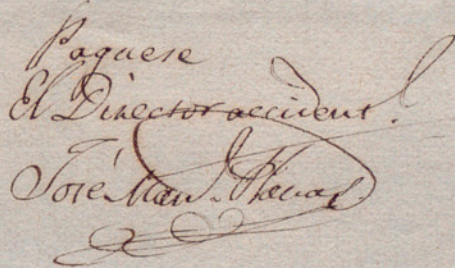 Paguese
El Director accident.l
José Man.l